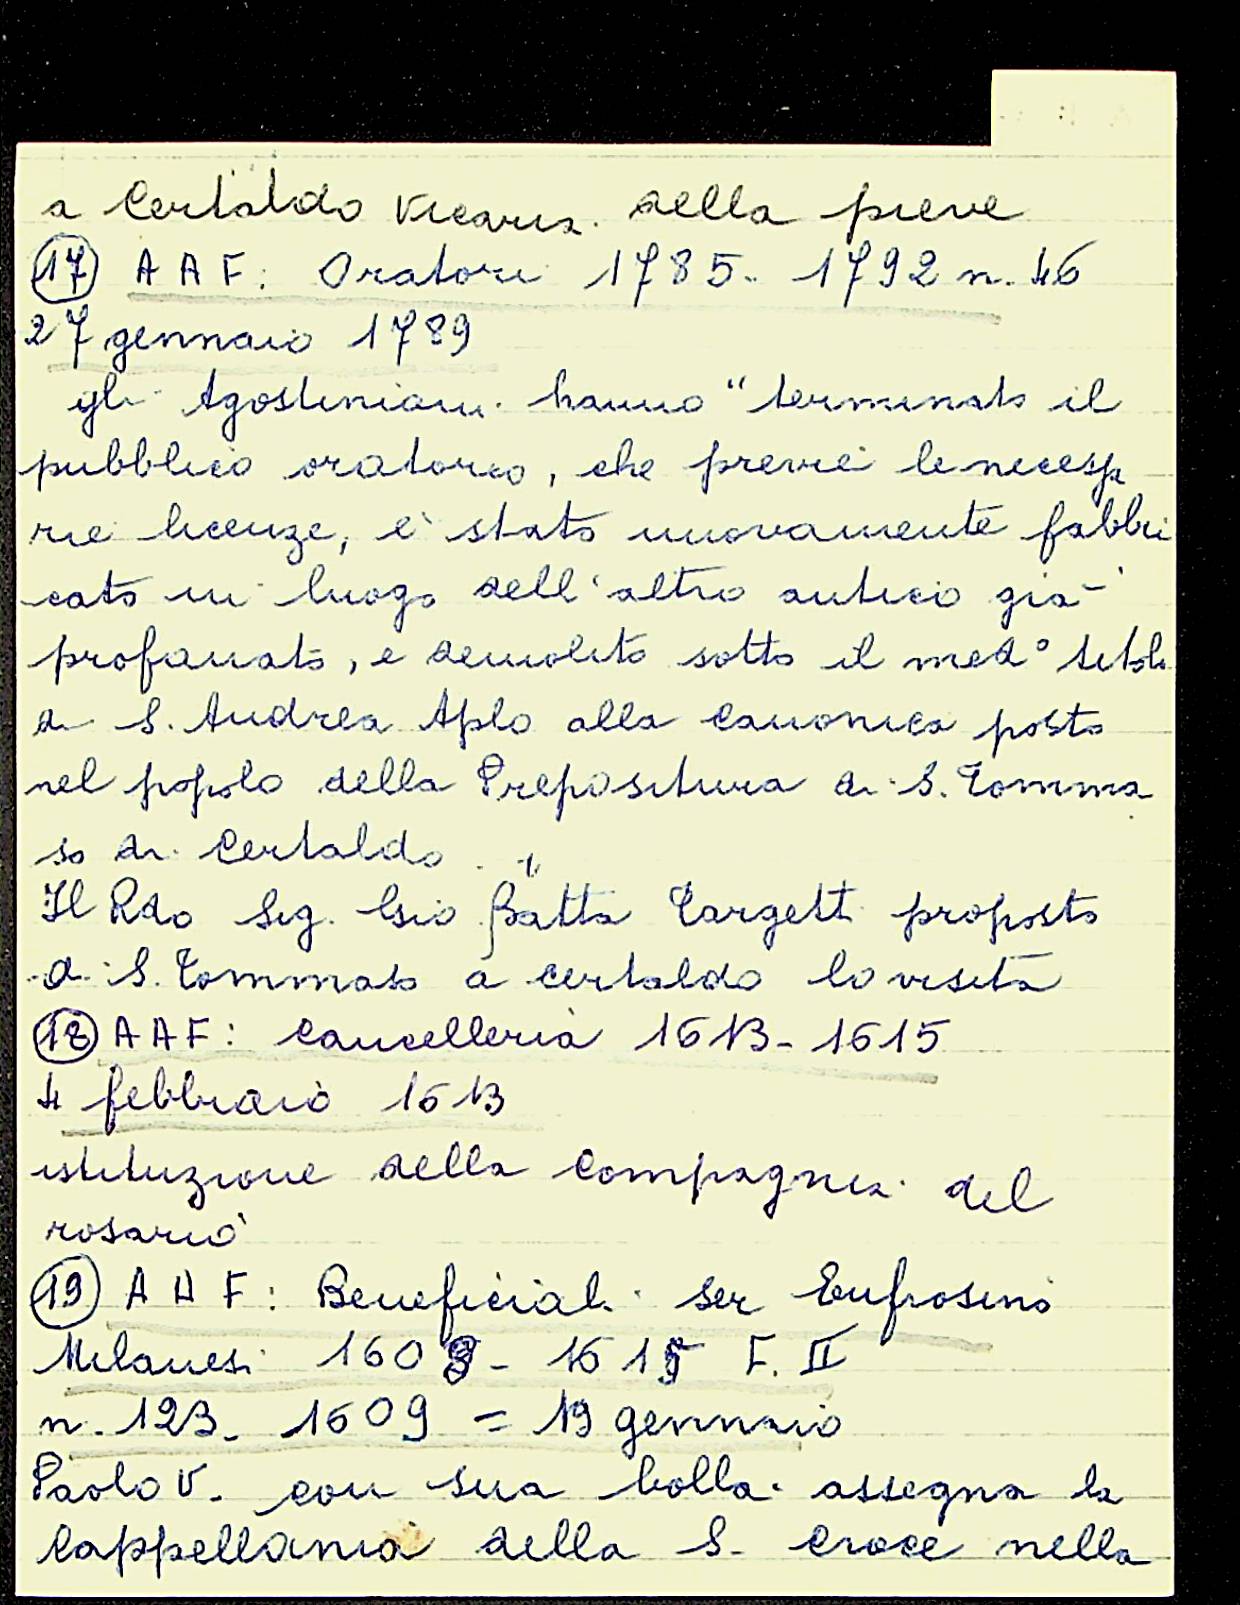 a Certaldo vicaria della pieve
17 AAF: Oratori 1785-1792 n. 46
27 gennaio 1789
gli Agostiniani hanno "terminato il
pubblico oratorio, che previe le necessa
rie licenze, è stato nuovamente fabbri
cato in luogo dell'altro antico già
profanato, e demolito sotto il med° titolo
di S. Andrea Aplo alla Canonica posto
nel popolo della Prepositura di S. Tomma
so di Certaldo."
Il Rdo Sig. Gio Batta Targetti proposto
di S. Tommaso a Certaldo lo visita
18 AAF: Cancelleria 1613-1615
4 febbraio 1613
istituzione della Compagnia del
rosario
19 AAF: Beneficiali ser Eufrosino
Milanesi 1608-1615 F. II
n. 123- 1609 = 19 gennaio
Paolo V. con sua bolla assegna la
Cappellania della S. Croce nella